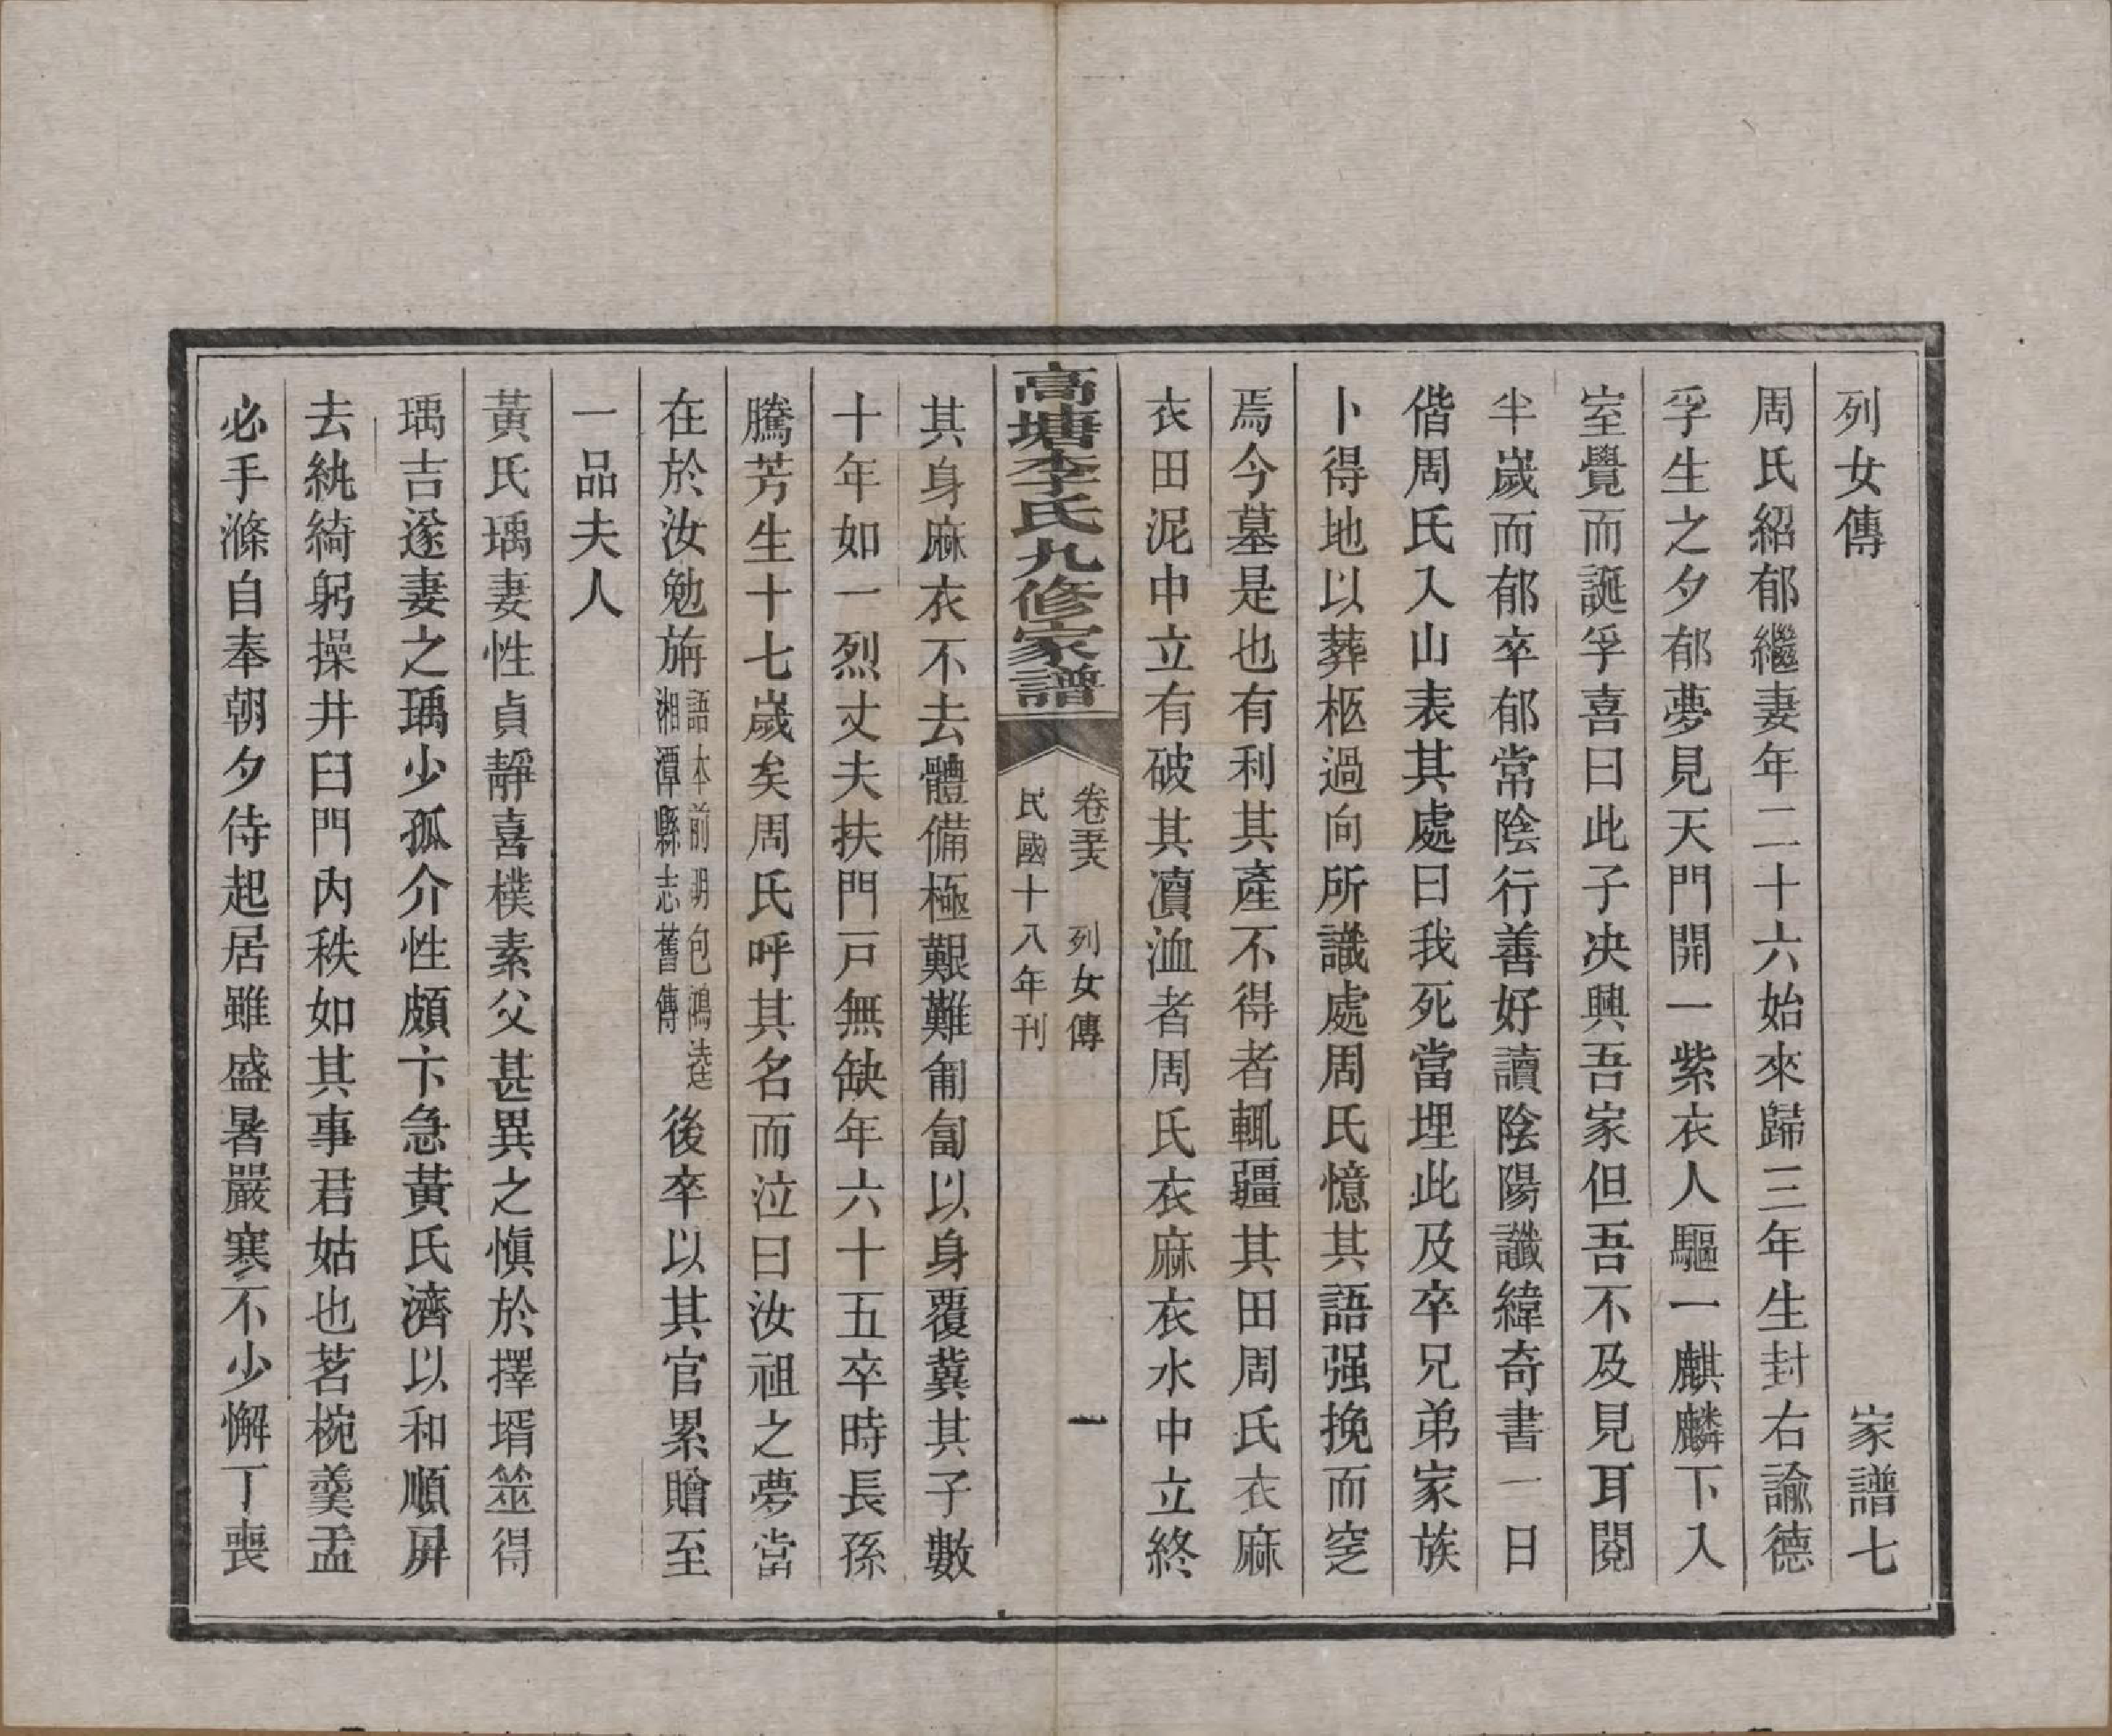 列女傳　家譜七
周氏紹郁繼妻年二十六始來歸三年生封右諭德
孚生之夕郁夢見天門開一紫衣人驅一麒麟下入
室覺而誕孚喜曰此子决興吾家但吾不及見耳閱
半歲而郁卒郁常陰行善好讀陰陽讖緯奇書一日
偕周氏入山表其處曰我死當埋此及卒兄弟家族
卜得地以葬柩過向所識處周氏憶其語强挽而窆
焉今墓是也有利其產不得者輒疆其田周氏衣麻
衣田泥中立有破其凟洫者周氏衣麻衣水中立終
高塘李氏九修家譜
卷　列女傳　一
民國十八年刊
其身麻衣不去體備極艱難匍匐以身覆冀其子數
十年如一烈丈夫扶門戸無缺年六十五卒時長孫
騰芳生十七歲矣周氏呼其名而泣曰汝祖之夢當
在於汝勉旃語本前明包鴻逵湘潭縣志舊傳後卒以其官累贈至
一品夫人
黃氏瑀妻性貞靜喜樸素父甚異之愼於擇壻筮得
瑀吉遂妻之瑀少孤介性頗卞急黃氏濟以和順屏
去紈綺躬操井臼門內秩如其事君姑也茗椀羹盂
必手滌自奉朝夕侍起居雖盛暑嚴寒不少懈丁喪